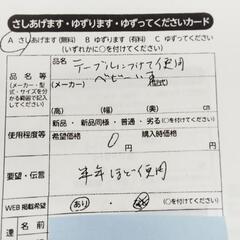 さしあげます・ゆずります・ゆずってくださいカード
A さしあげます(無料) B ゆずります(有料) C ゆずってください
(いずれかに○を付けてください)
品名等
(メーカー・型式・サイズを付かる範囲で記入してください)
品名
テーブルにつけて使用
ベビーいす
(メーカー) (型式)
(高) (幅) (奥) cm
使用程度等
新品・新品同様・普通・劣る(○を付けてください)
希望価格 購入時価格
0円 円
要望・伝言
半年ほど使用
WEB掲載希望
あり・なし (○を付けてください)